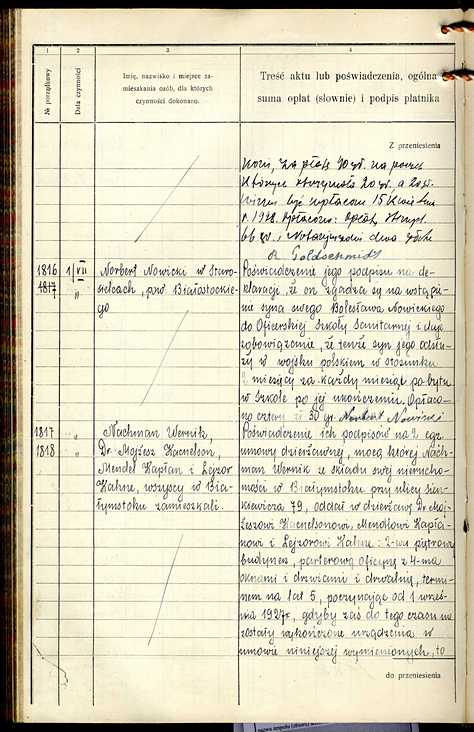 1
2
3
4
№ porządkowy
Data czynności
Imię, nazwisko i miejsce za-
mieszkania osób, dla których
czynności dokonano.
Treść aktu lub poświadczenia, ogólna
suma opłat (słownie) i podpis płatnika
Z przeniesienia
20 zł. a 20 zł.
być wpłacone 15 Kwietnia
r. 1928. Opłacono:
66 zł. i dwa złote
R Goldschmidt
1816
1817
1/VII
"
Norbert Nowicki w Staro-
sielcach, pow. Białostockie-
go
Poświadczenie jego podpisu na de-
klaracji, że on zgadza się na wstąpie-
nie syna swego Bolesława Nowickiego
do Oficerskiej Szkoły Sanitarnej i daje
zobowiązanie, że tenże syn jego odsłu-
ży w wojsku polskiem w stosunku
2 miesięcy za każdy miesiąc pobytu
w szkole po jej ukończeniu. Opłaco-
no cztery zł 30 gr. Norbert Nowicki
1817
1818
"
"
Nachman Wernik,
Dr. Mojżesz Kacnelson,
Mendel Kapłan i Lejzor
Kahne, wszyscy w Bia-
łymstoku zamieszkali.
Poświadczenie ich podpisów na 2 egz.
umowy dzierżawnej, mocą której Nach-
man Wernik ze składu swej nierucho-
mości w Białymstoku przy ulicy Sien-
kiewicza 79, oddał w dzierżawę Dr. Moj-
żeszowi Kacnelsonowi, Mendlowi Kapła-
nowi i Lejzorowi Kahne: 2-wu piętrowy
budynek, parterową oficynę z 4-ma
oknami i drzwiami i drwalnię, termi-
nem na lat 5, poczynając od 1 wrześ-
nia 1927r, gdyby zaś do tego czasu nie
zostały wykończone urządzenia w
umowie niniejszej wymienionych, to
do przeniesienia